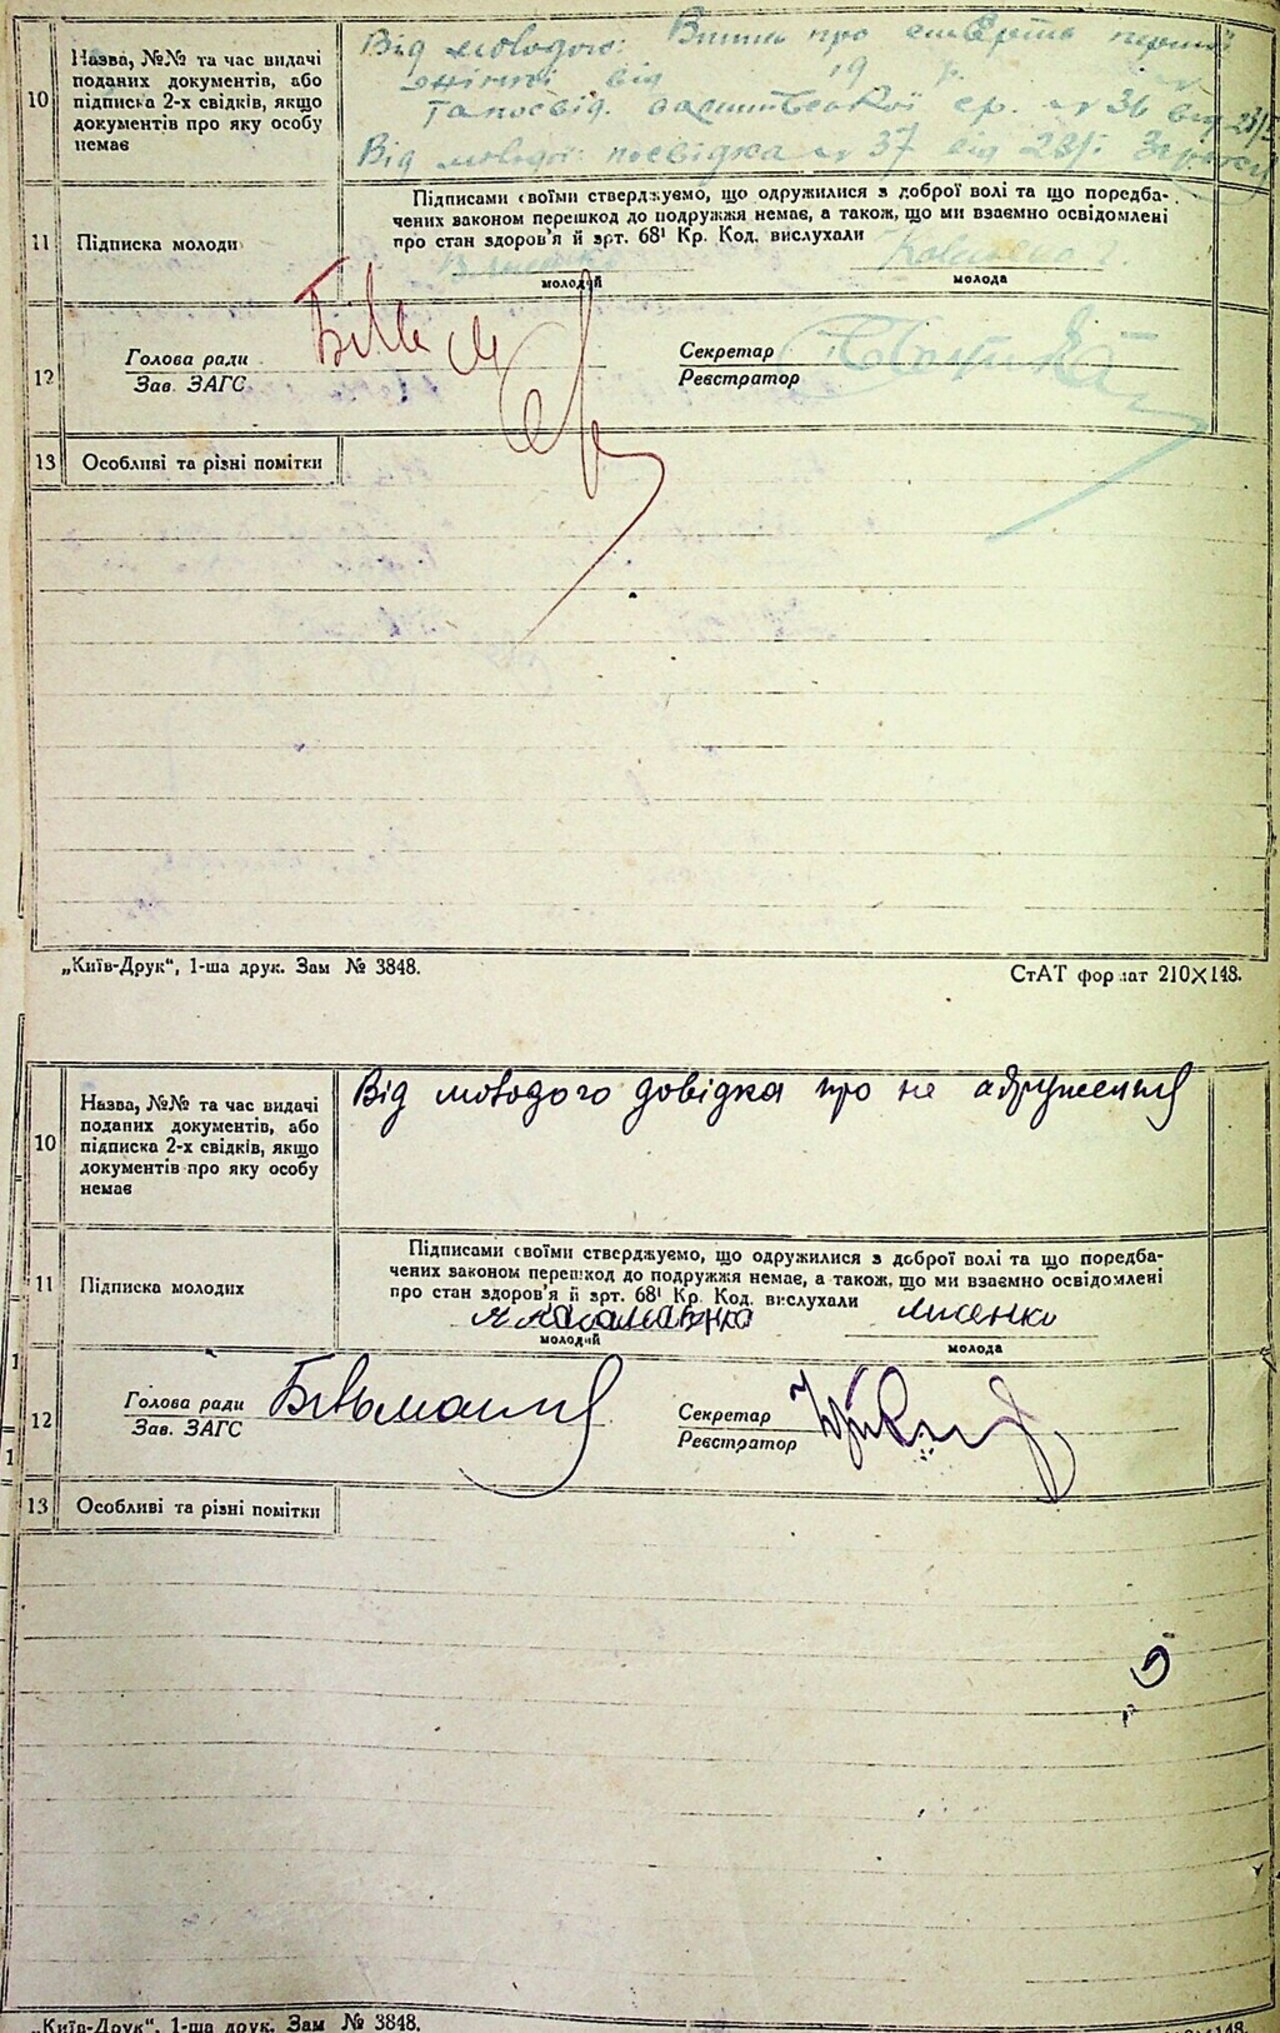 10
Назва, №№ та час видачі
поданих документів, або
підписка 2-х свідків, якщо
документів про яку особу
немає
Від молодого: про смерть першої
від 19 р. №
ср. № 36 від 23/I
Від молодої: посвідка № 37 від 23/I
11
Підписка молоди
Підписами своїми стверджуємо, що одружилися з доброї волі та що передба-
чених законом перешкод до подружжя немає, а також, що ми взаємно освідомлені
про стан здоров'я й арт. 68¹ Кр. Код. вислухали
молодий
молода
12
Голова ради
Зав. ЗАГС
Секретар
Реєстратор
13
Особливі та різні помітки
„Київ-Друк“, 1-ша друк. Зам № 3848.
СтАТ формат 210×148.
10
Назва, №№ та час видачі
поданих документів, або
підписка 2-х свідків, якщо
документів про яку особу
немає
Від молодого довідка про не адруження
11
Підписка молодих
Підписами своїми стверджуємо, що одружилися з доброї волі та що передба-
чених законом перешкод до подружжя немає, а також, що ми взаємно освідомлені
про стан здоров'я й арт. 68¹ Кр. Код. вислухали
лисенко
молодий
молода
12
Голова ради
Зав. ЗАГС
Секретар
Реєстратор
13
Особливі та різні помітки
„Київ-Друк“, 1-ша друк. Зам № 3848.